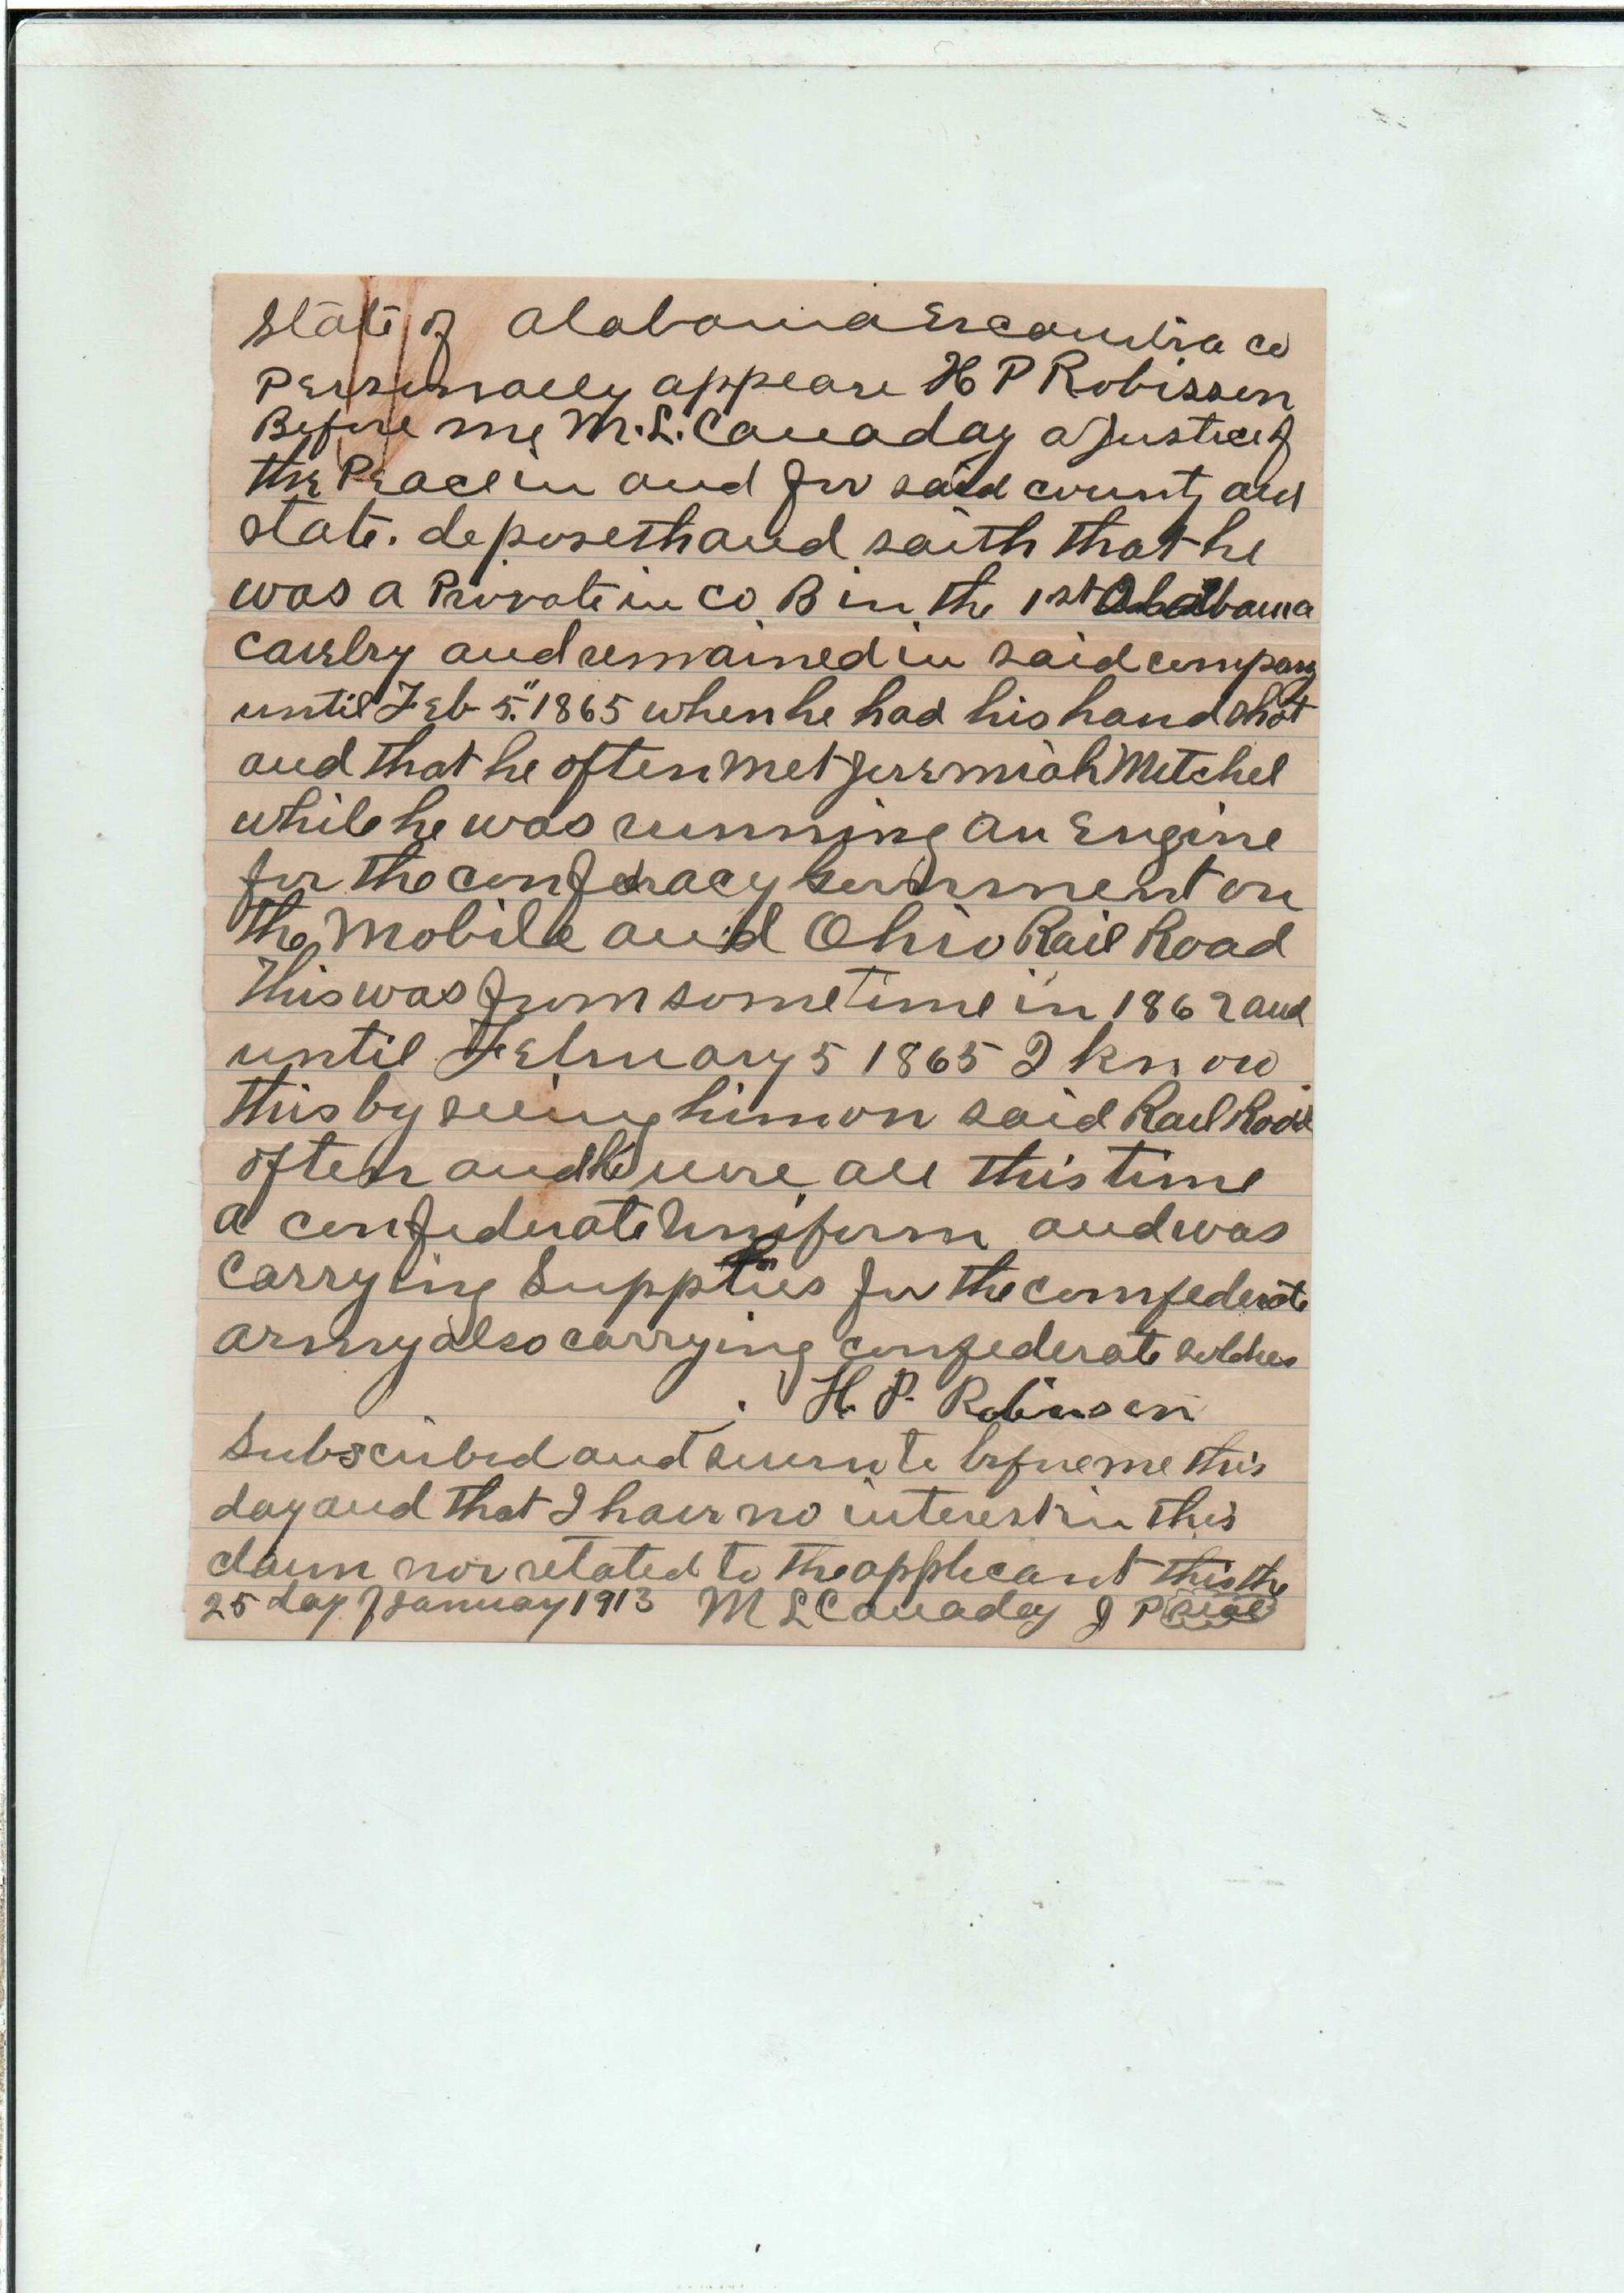 State of Alabama Escambia co
Personally appeare H P Robisson
Before me M. L. Canaday a Justice of
the Peace in and for said county and
state. deposeth and saith that he
was a Private in Co B in the 1st Alabama
Cavelry and remained in said company
until Feb 5" 1865 when he had his hand shot
and that he often met Jeremiah Mitchel
while he was running an Engine
for the confedracy on
the Mobile and Ohio Rail Road
This was from sometime in 1862 and
until February 5 1865 I know
this by seeing him on said Rail Road
often and he wore all this time
a confederate Uniform and was
Carrying Supplies for the confederate
army also carrying confederate soldies
H. P. Robinson
Subscribed and sworn to before me this
day and that I have no interest in this
claim nor related to the applicant this the
25 day of January 1913 M L Canaday J P Seal